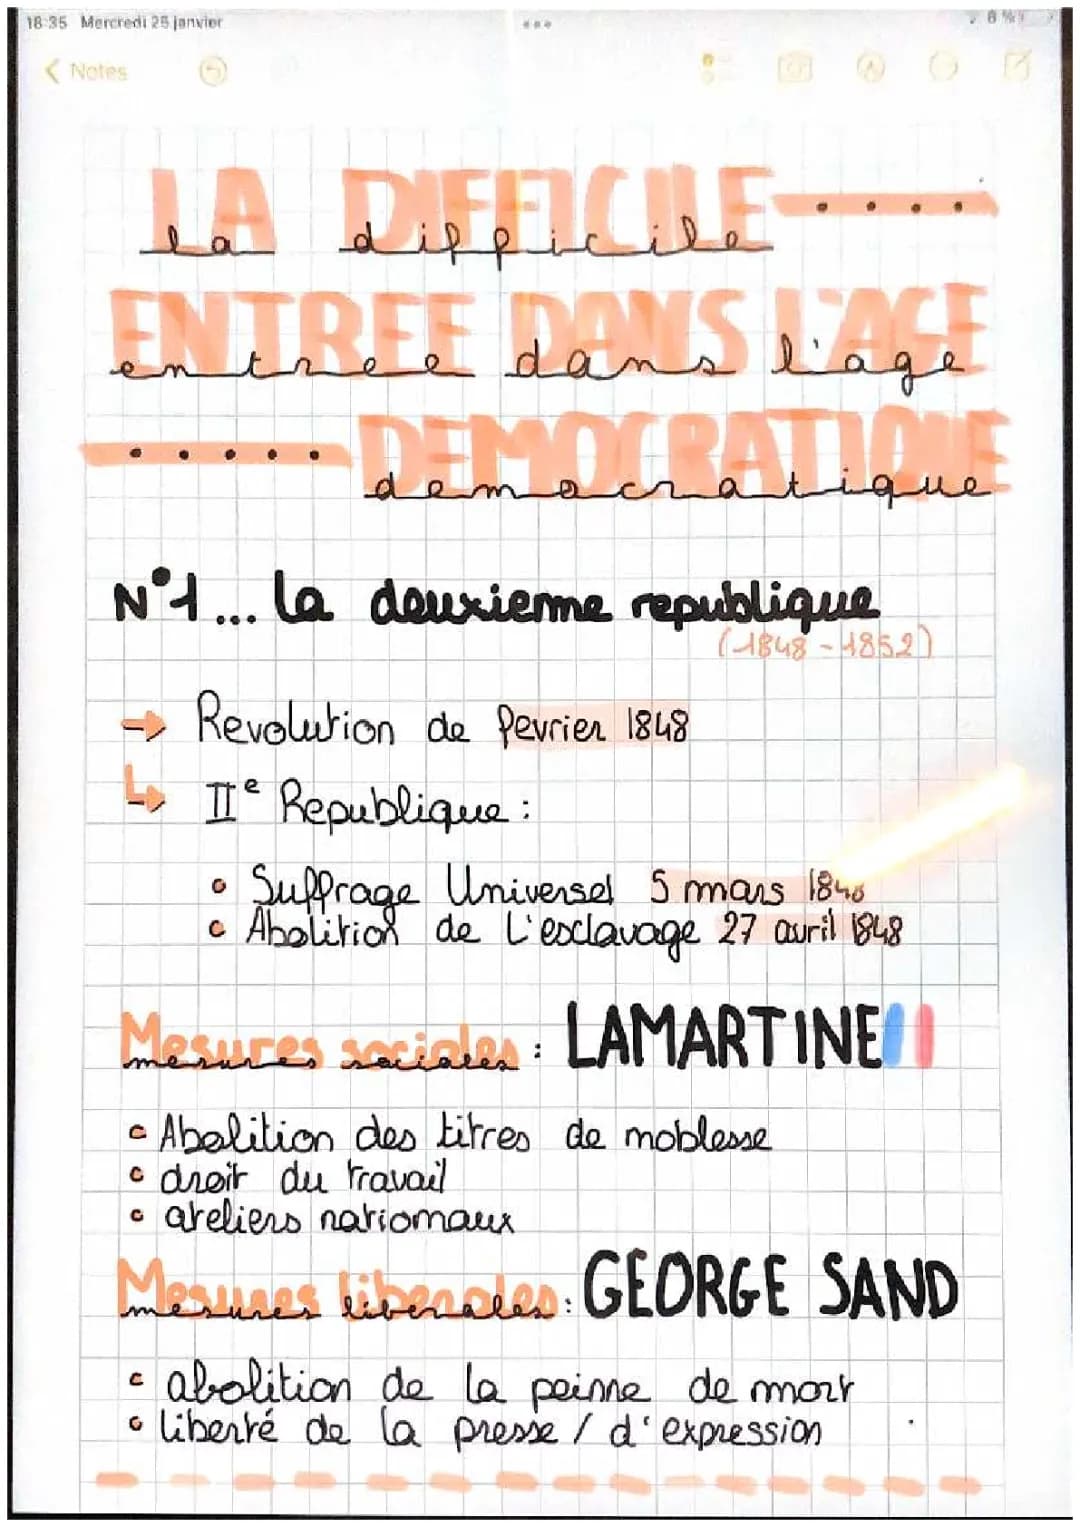 18:35 Mercredi 25 janvier
8 %
Notes
LA DIFFICILE
la difficile
ENTREE DANS L'AGE
entree dans l'age
DEMOCRATIQUE
democratique
N°1... la deuxienne republique
(1848-1852)
→ Revolution de fevrier 1848
↳ IIe Republique :
• Suffrage Universel 5 mars 1848
• Abolition de l'esclavage 27 avril 1848
Mesures sociales
mesures sociales : LAMARTINE
• Abolition des titres de noblesse
• droit du travail
• ateliers nationaux
Mesures liberales
mesures liberales : GEORGE SAND
• abolition de la peinne de mort
• liberté de la presse / d'expression